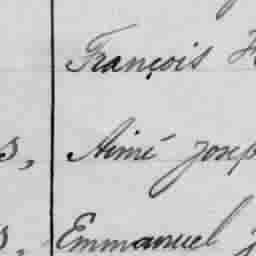 François
s, Aimé Josep
s, Emmanuel J